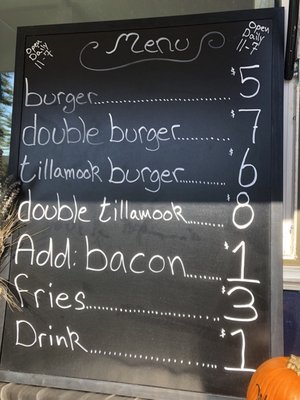 Open Daily 11-7
Menu
Open Daily 11-7
burger $5
double burger $7
tillamook burger $6
double tillamook $8
Add: bacon $1
fries $3
Drink $1